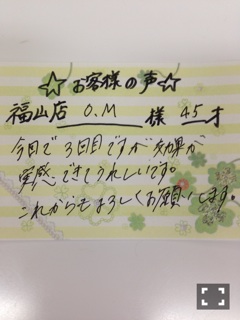 ☆お客様の声☆
福山店 O.M 様 45才
今日で3回目ですが効果が
実感できてうれしいです。
これからもよろしくお願いします。